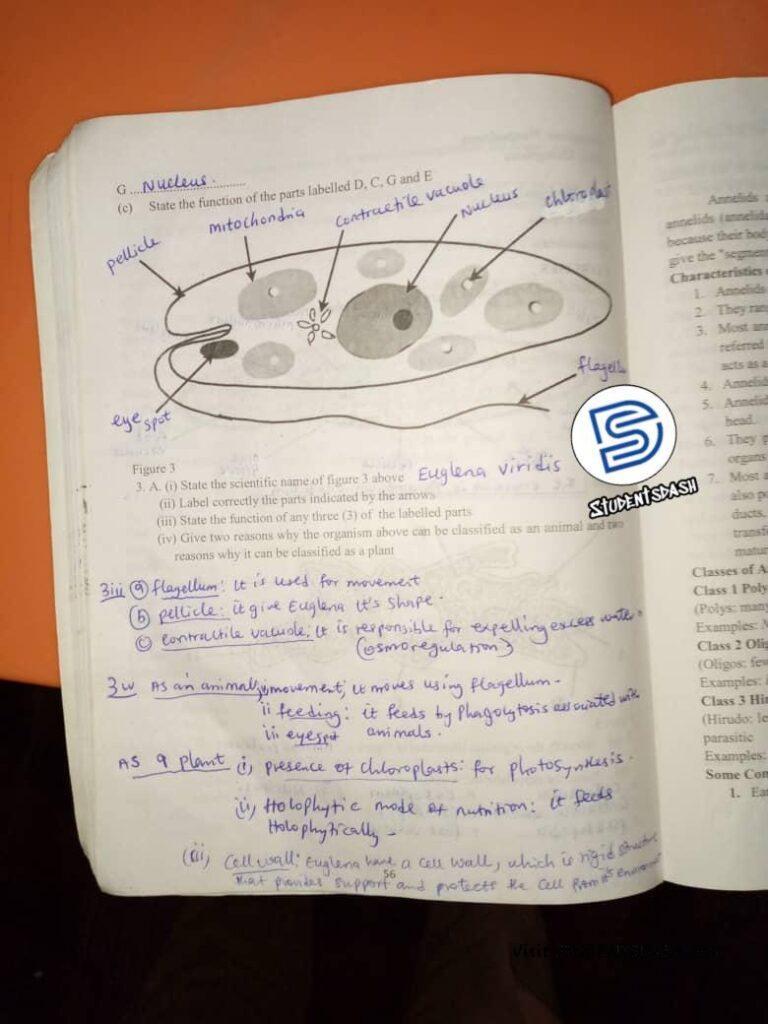 G ... Nucleus.
(c) State the function of the parts labelled D, C, G and E
pellicle
mitochondria
contractile vacuole
Nucleus
chloroplast
eye spot
flagell
Figure 3
3. A. (i) State the scientific name of figure 3 above Euglena viridis
(ii) Label correctly the parts indicated by the arrows
(iii) State the function of any three (3) of the labelled parts
(iv) Give two reasons why the organism above can be classified as an animal and two
reasons why it can be classified as a plant
3iii (a) flagellum: It is used for movement
(b) pellicle: it give Euglena It's shape.
(c) contractile vacuole: It is responsible for expelling excess water.
(osmoregulation)
3iv As an animal, i, movement; it moves using flagellum.
ii feeding: it feeds by Phagolytosis associated with
iii eyespot animals.
As a plant (i, presence of chloroplasts: for photosynthesis.
(ii, Holophytic mode of nutrition: it feeds
Holophytically -
(iii, Cell wall: Euglena have a cell wall, which is rigid structure
that provides support and protects the cell from its
56
STUDENTSDASH
Annelids
annelids (annelida
because their body
give the "segment
Characteristics
1. Annelids
2. They ran
3. Most ann
referred
acts as a
4. Annelid
5. Annelid
head.
6. They p
organs
7. Most a
also po
ducts,
transf
matur
Classes of A
Class 1 Poly
(Polys: many
Examples: N
Class 2 Olig
(Oligos: few
Examples:
Class 3 Hir
(Hirudo: le
parasitic
Examples:
Some Com
1. Ear
Visit